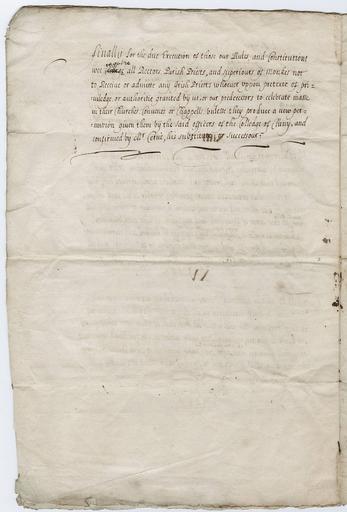 Finally for the due Execution of those our Rules and Constitutions
wee require all Rectors, Parish Priests, and superiours of Houses not
to Receive or admitte any Irish Priests whoever uppon pretence of pri-
=viledge or authoritie granted by us or our predecessors to celebrate masse
in their Churches, Convents or Chappells unless they produce a new per-
=mission given them by the said officers of the Colledge of Cluny, and
confirmed by Mr. his substitutes or successors.